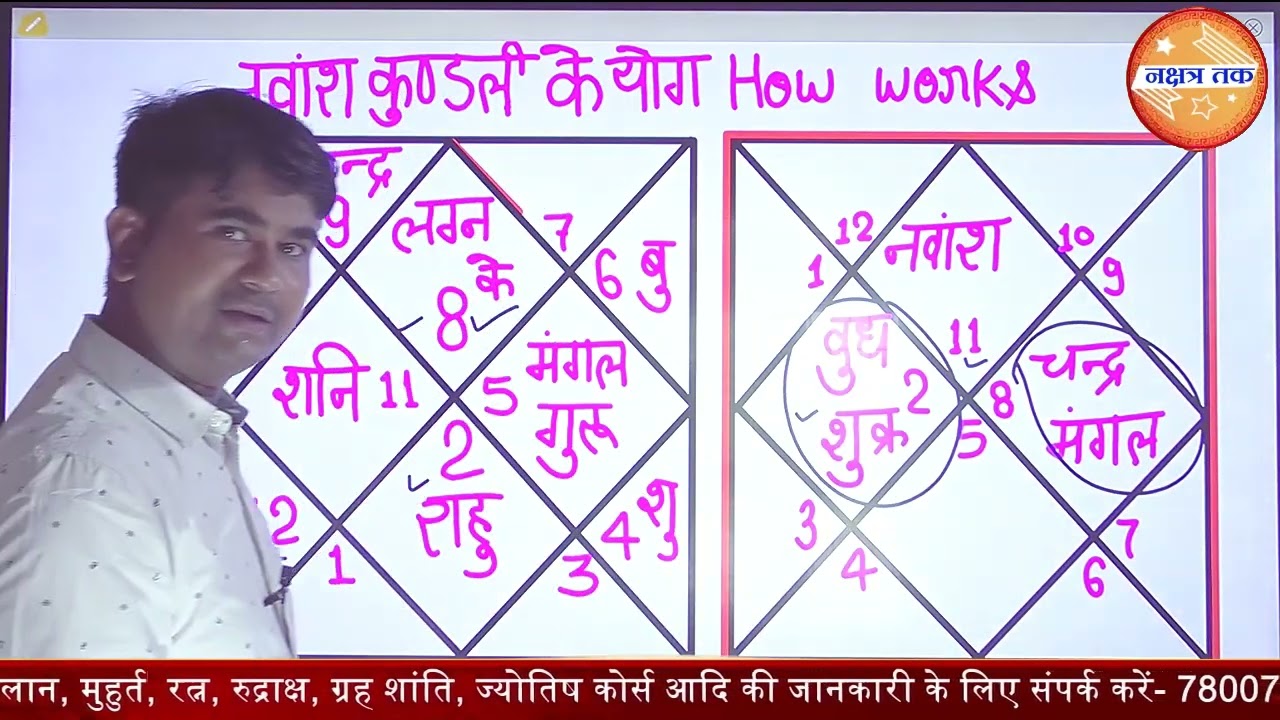 नवांश कुण्डली के योग How works
नक्षत्र तक
न्द्र
9
लग्न
के
8
7
6 बु
शनि 11
5 मंगल
गुरू
2
राहु
4 शु
3
1
2
12 नवांश 10
1
9
वुध
शुक्र
2
11
8
चन्द्र
मंगल
5
3
4
7
6
लान, मुहुर्त, रत्न, रुद्राक्ष, ग्रह शांति, ज्योतिष कोर्स आदि की जानकारी के लिए संपर्क करें- 78007